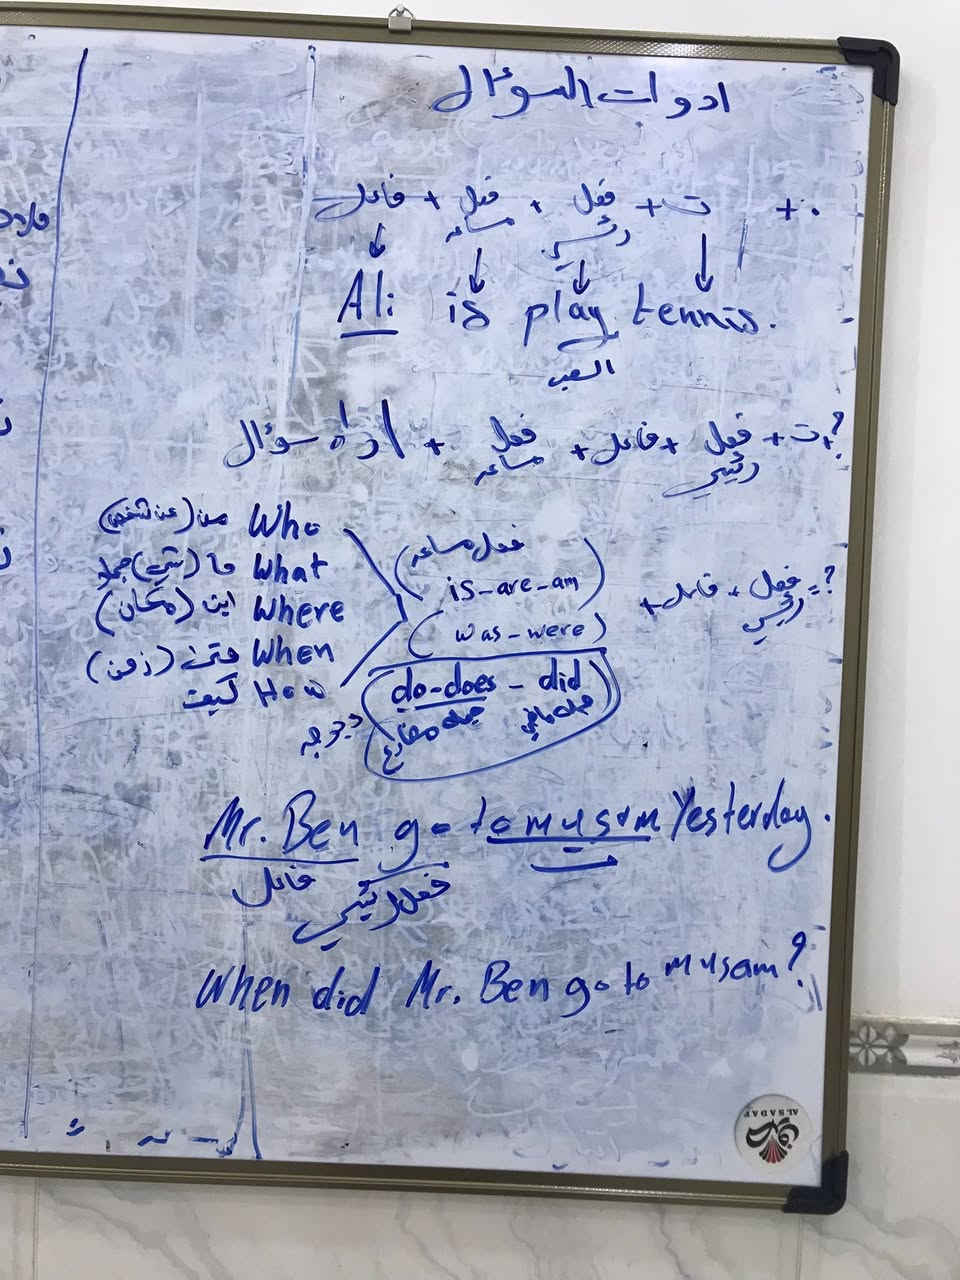 ادوات السؤال
فاعل + فعل مساعد + فعل رئيسي + ت + .
Ali is play tennis.
اللعب
اداة سؤال + فعل مساعد + فاعل + فعل رئيسي + ت + ?
Who من (عن شخص)
What ما (شيء) جملة
Where اين (مكان)
When متى (زمن)
How كيف
فعل مساعد
is-are-am
(was-were)
do-does - did
جملة مضارع جملة ماضي
+ فاعل + فعل رئيسي = ?
Mr. Ben go to musam Yesterday.
فاعل فعل رئيسي ت
When did Mr. Ben go to musam?
ALSADAF